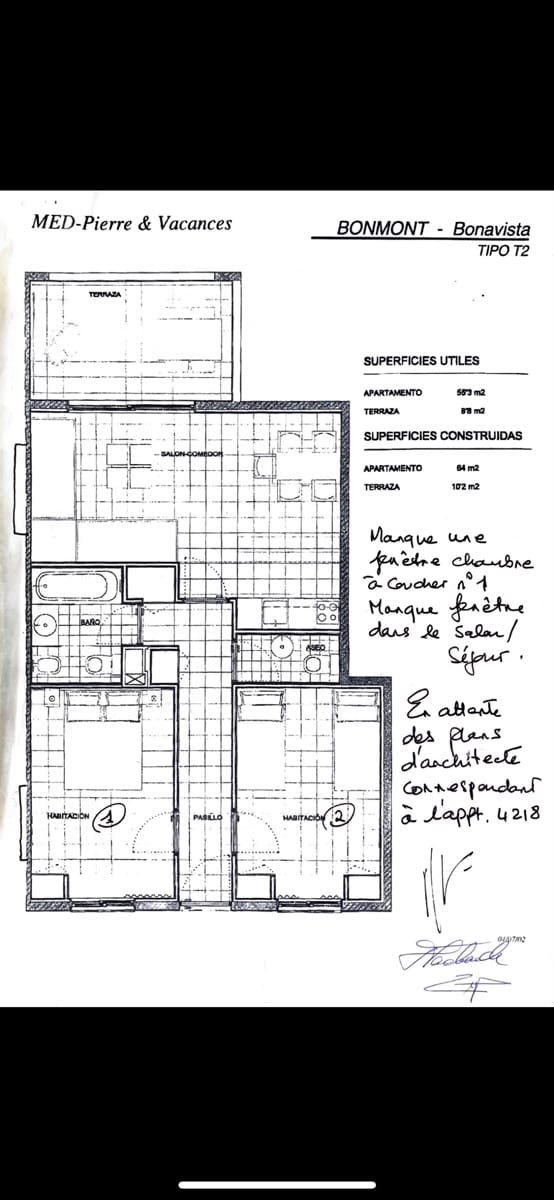 MED-Pierre & Vacances
BONMONT - Bonavista
TIPO T2
TERRAZA
SUPERFICIES UTILES
APARTAMENTO 55'3 m2
TERRAZA 8'8 m2
SUPERFICIES CONSTRUIDAS
APARTAMENTO 64 m2
TERRAZA 10'2 m2
SALON-COMEDOR
Manque une
fenêtre chambre
à coucher n°1
Manque fenêtre
dans le Salon/
Séjour.
BAÑO
ASEO
En attente
des plans
d'architecte
correspondant
à l'appt. 4218
HABITACION 1
PASILLO
HABITACION 2